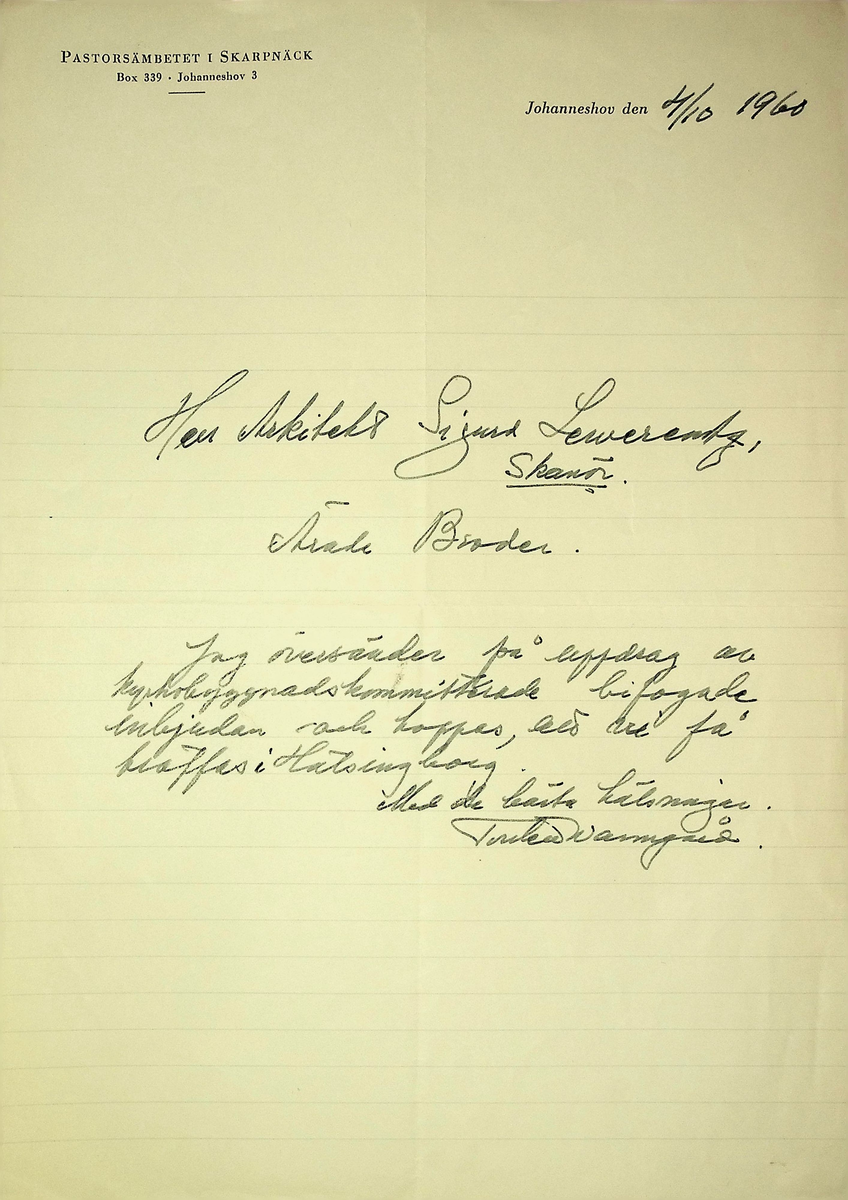 PASTORSÄMBETET I SKARPNÄCK
Box 339 · Johanneshov 3
Johanneshov den 4/10 1960
Herr Arkitekt Sigurd Lewerentz,
Skanör.
Ärade Broder.
Jag översänder på uppdrag av
kyrkobyggnadskommitterade bifogade
inbjudan och hoppas, att vi få
träffas i Hälsingborg.
Med de bästa hälsningar.